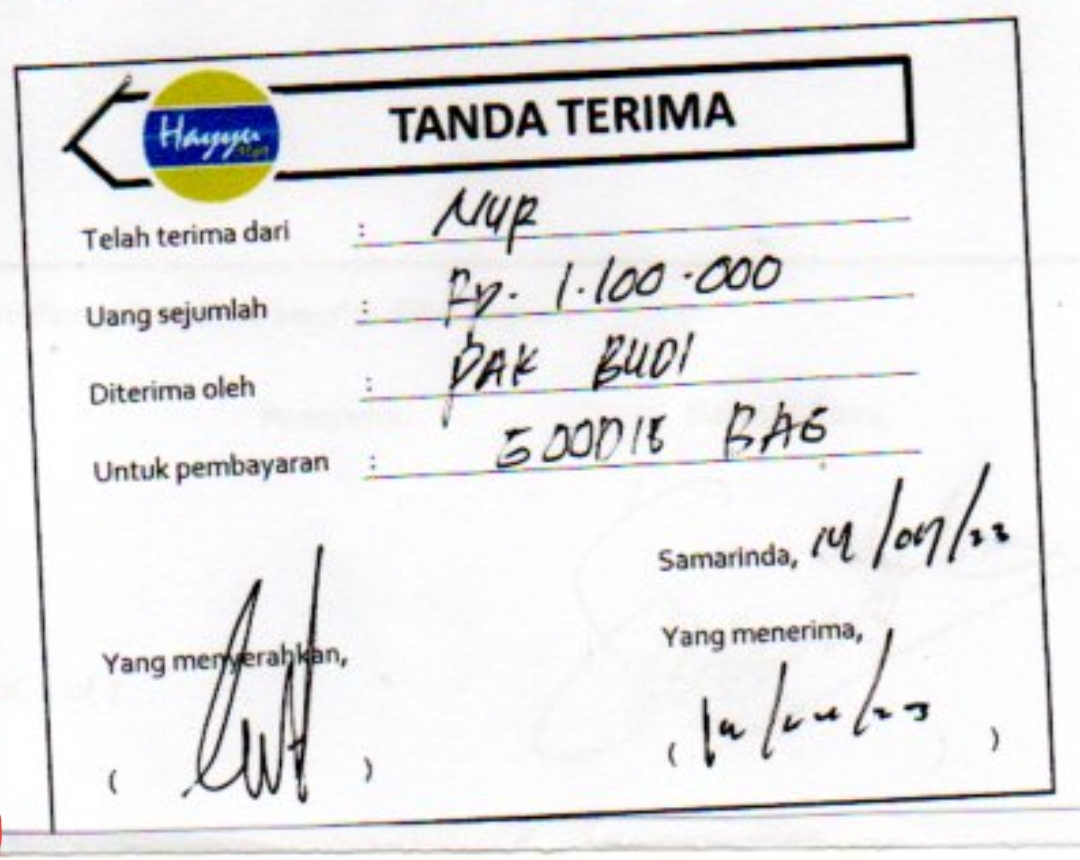 Hayyu
TANDA TERIMA
Telah terima dari : NUR
Uang sejumlah : Rp. 1.100.000
Diterima oleh : PAK BUDI
Untuk pembayaran : GOODIE BAG
Samarinda, 14/07/23
Yang menyerahkan,
Yang menerima,
( )
( )